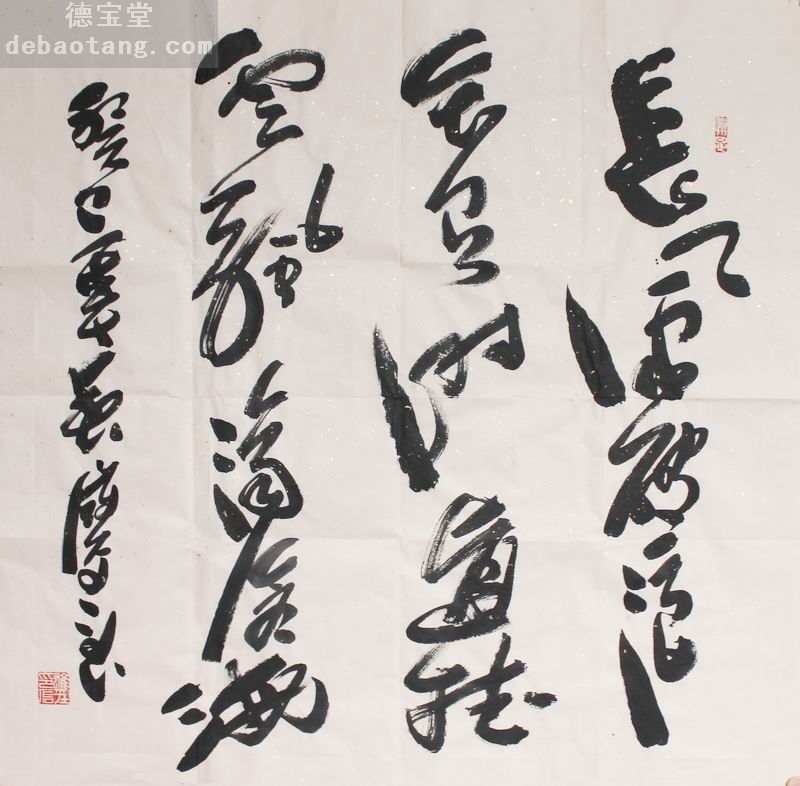 德宝堂
debaotang.com
長風破浪
會有時直掛
雲帆濟滄海
癸巳夏